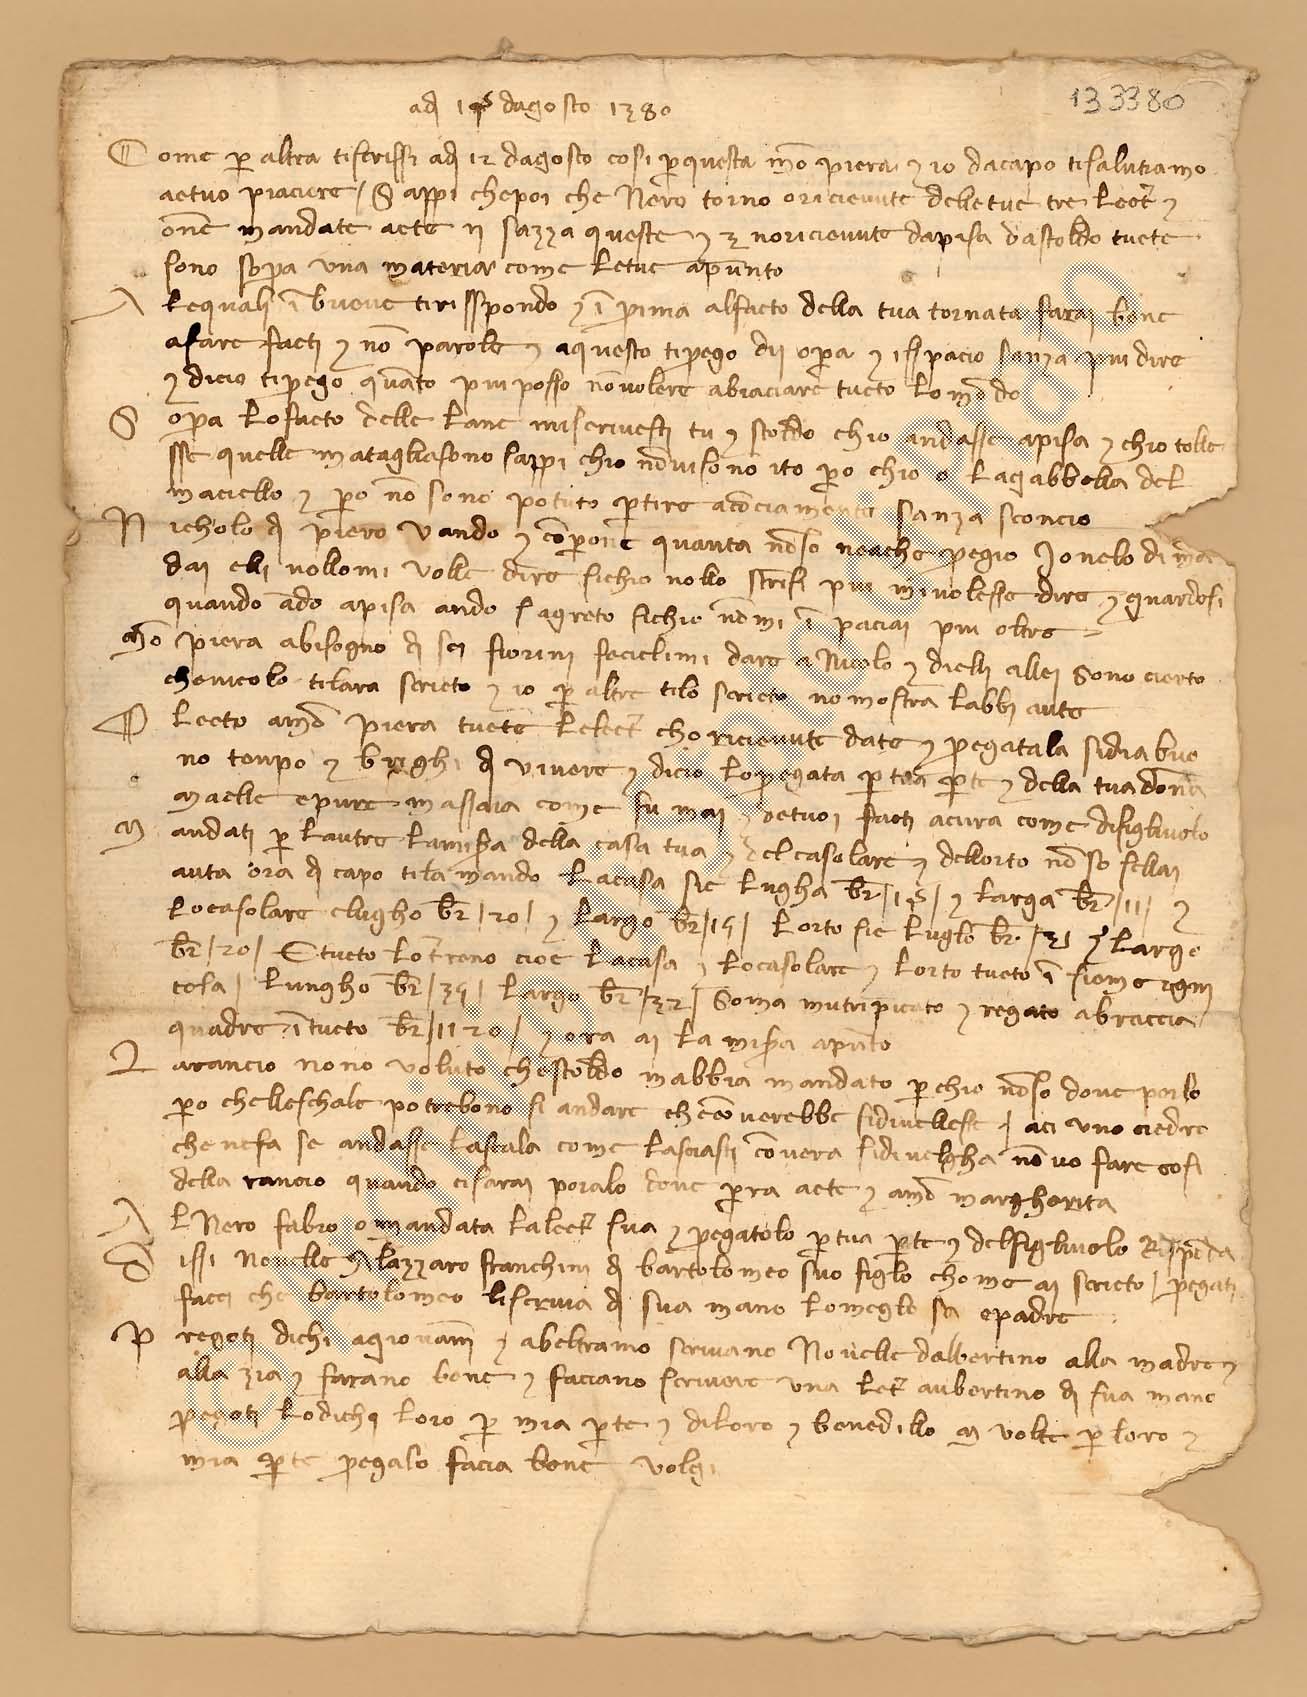 adj 15 dagosto 1380
133380
Come p altra tiscrissi adj 12 dagosto cosi p questa mõ piera 7 io dacapo tisalutiamo
aetuo piacere / Sappi chepoi che Nero torno oricievute delle tue tre lett 7
one mandate aete 11 sazza queste 7 3 noricievute dapisa dastoldo tucte
sono sopa una materia come letue apunto
A lequali ĩ brieve tirisspondo 7 ĩ prima alfacto della tua tornata farai bene
afare facti 7 nõ parole 7 aquesto tipriego dii opa 7 ispacio sanza piu dire
7 dicio tipriego quãto piu posso nõ volere abraciare tucto lo mõdo
Sopa lo facto delle lane miscrivesti tu 7 stoldo chio andasse apisa 7 chio tolle
sse quelle matagliasono sappi chio nõvisono ito po chio o lagabbella del
maciello 7 po nõ sono potuto ptire acõciamente sanza sconcio
Nicholo dj piero vando 7 cõperone quanta nõso neache pregio Jonelo dimã
dai elli nollomi volle dire sichio nollo strĩsi piu mivolesse dire 7 guardosi
quando ãdo apisa ando sagreto sichio nõmi ĩ paciai piu oltre
Mõ piera abisogno dj sei fiorini fecielimi dare aNicolo 7 dielli allei sono cierto
chenicolo tilara scricto 7 io p altre tilo scricto no mostra labbi aute
Lecto amõ piera tucte lelect cho ricievute date 7 pregatala sidia buo
no tenpo 7 brighi dj vivere 7 dicio lo pregata p tua pte 7 della tua dona
Maelle epure massaia come fu mai 7 oetuoi facti acura come disigliuolo
Mandati p lautre lamisa della casa tua 7 delcasolare 7 dellorto nõ so sellai
auta ora dj capo tila mando Lacasa sie lugha br /15/ 7 larga br /11/ 7
Locasolare elugho br /20/ 7 largo br /15/ Lorto sie lugho br /31 7 largo
br /20/ E tucto lotreno cioe lacasa 7 locasolare 7 lorto tucto ĩ sieme ogni
cosa / lungho br /35/ largo br /32/ Soma mutripicato 7 regato abraccia
quadre ĩ tucto br /1120/ 7 ora ai la misa apũto
Larancio nono voluto chestoldo mabbia mandato p chio nõso dove porlo
po chelleschale potrebono si andare che cõverebbe sidivellesse / aci uno ciedro
che nefa se andasse lascala come lasciasti cõverra sidivelgha nõ vo fare cosi
della rancio quando cisarai poralo dove parra aete 7 amõ margherita
Al Nero fabro o mandata lalect sua 7 pregatolo p tua pte 7 delfigliuolo Rispõda
Dissi novelle Mº lazzaro franchini dj bartolomeo suo figlio chome ai scricto / pregati
facci che bartolomeo liscriva dj sua mano lomeglo sa epadre
Pregoti dichi agiovãni 7 abeltramo scrivano Novelle dalbertino alla madre 7
alla zia 7 farano bene 7 faciano scrivere una lect aubertino dj sua mano
pregoti lodichi loro p mia pte 7 diloro 7 benedillo M volte p loro 7
mia pte pregalo facia bene volgi